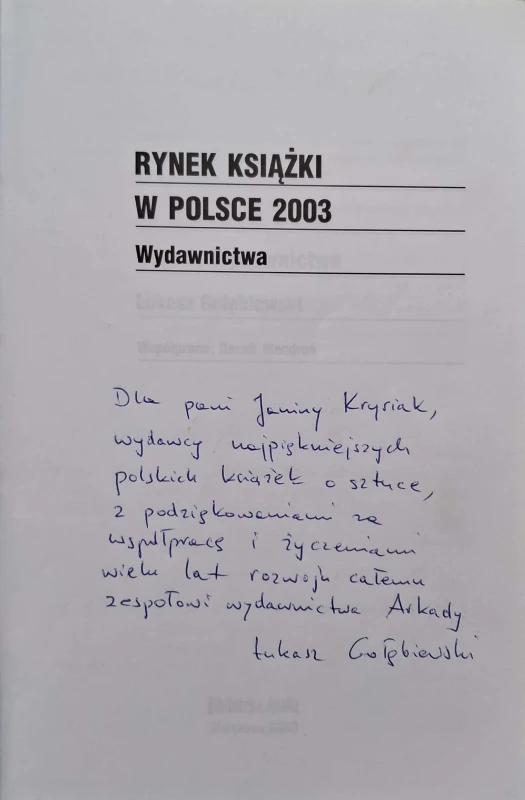 RYNEK KSIĄŻKI
W POLSCE 2003
Wydawnictwa
Łukasz Gołębiewski
Współpraca: Daniel
Dla pani Janiny Krysiak,
wydawcy najpiękniejszych
polskich książek o sztuce,
z podziękowaniami za
współpracę i życzeniami
wielu lat rozwoju całemu
zespołowi wydawnictwa Arkady
Łukasz Gołębiewski